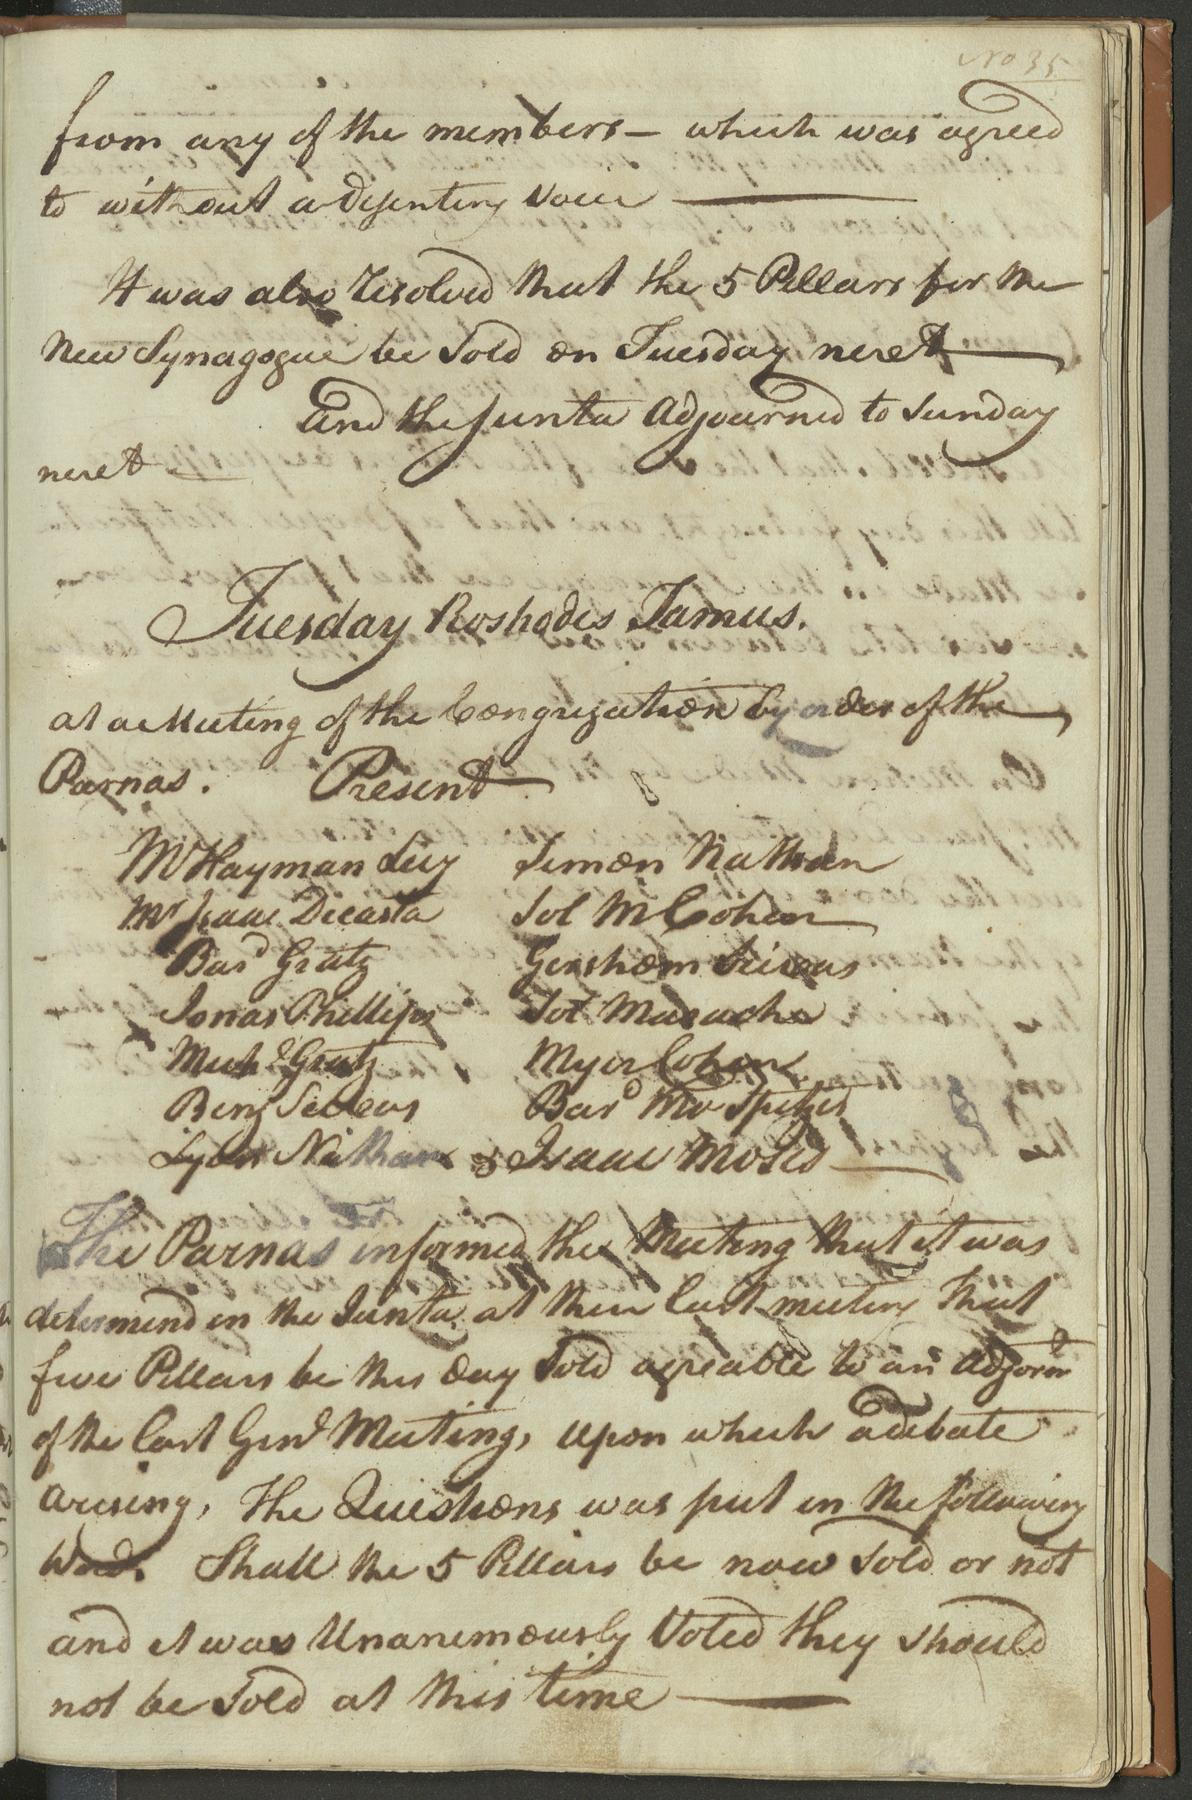 No 35
from any of the members — which was agreed
to without a disenting voice —
It was also Resolved that the 5 Pillars for the
New Synagogue be Sold on Tuesday next —
and the Junta Adjourned to Sunday
next —
Tuesday Roshodes Tamus.
at a Meeting of the Congregation by order of the
Parnas. Present
Mr Hayman Levy Simon Nathan
Mr Isaac Dacosta Sol M Cohen
Bard Gratz Gershom Seixas
Jonas Phillips Sol Maracha
Michl Gratz Myer Cohen
Benj Seixas Bard Ms Spitzer
Lyon Nathan & Isaac Moses —
The Parnas informed the Meeting that it was
determind in the Junta at their last meeting that
five Pillars be this day Sold agreable to an Adjornt
of the last Genl Meeting, upon which a debate
arising, the Questions was put in the following
Word. Shall the 5 Pillars be now Sold or not
and it was Unanimously Voted they should
not be Sold at this time —